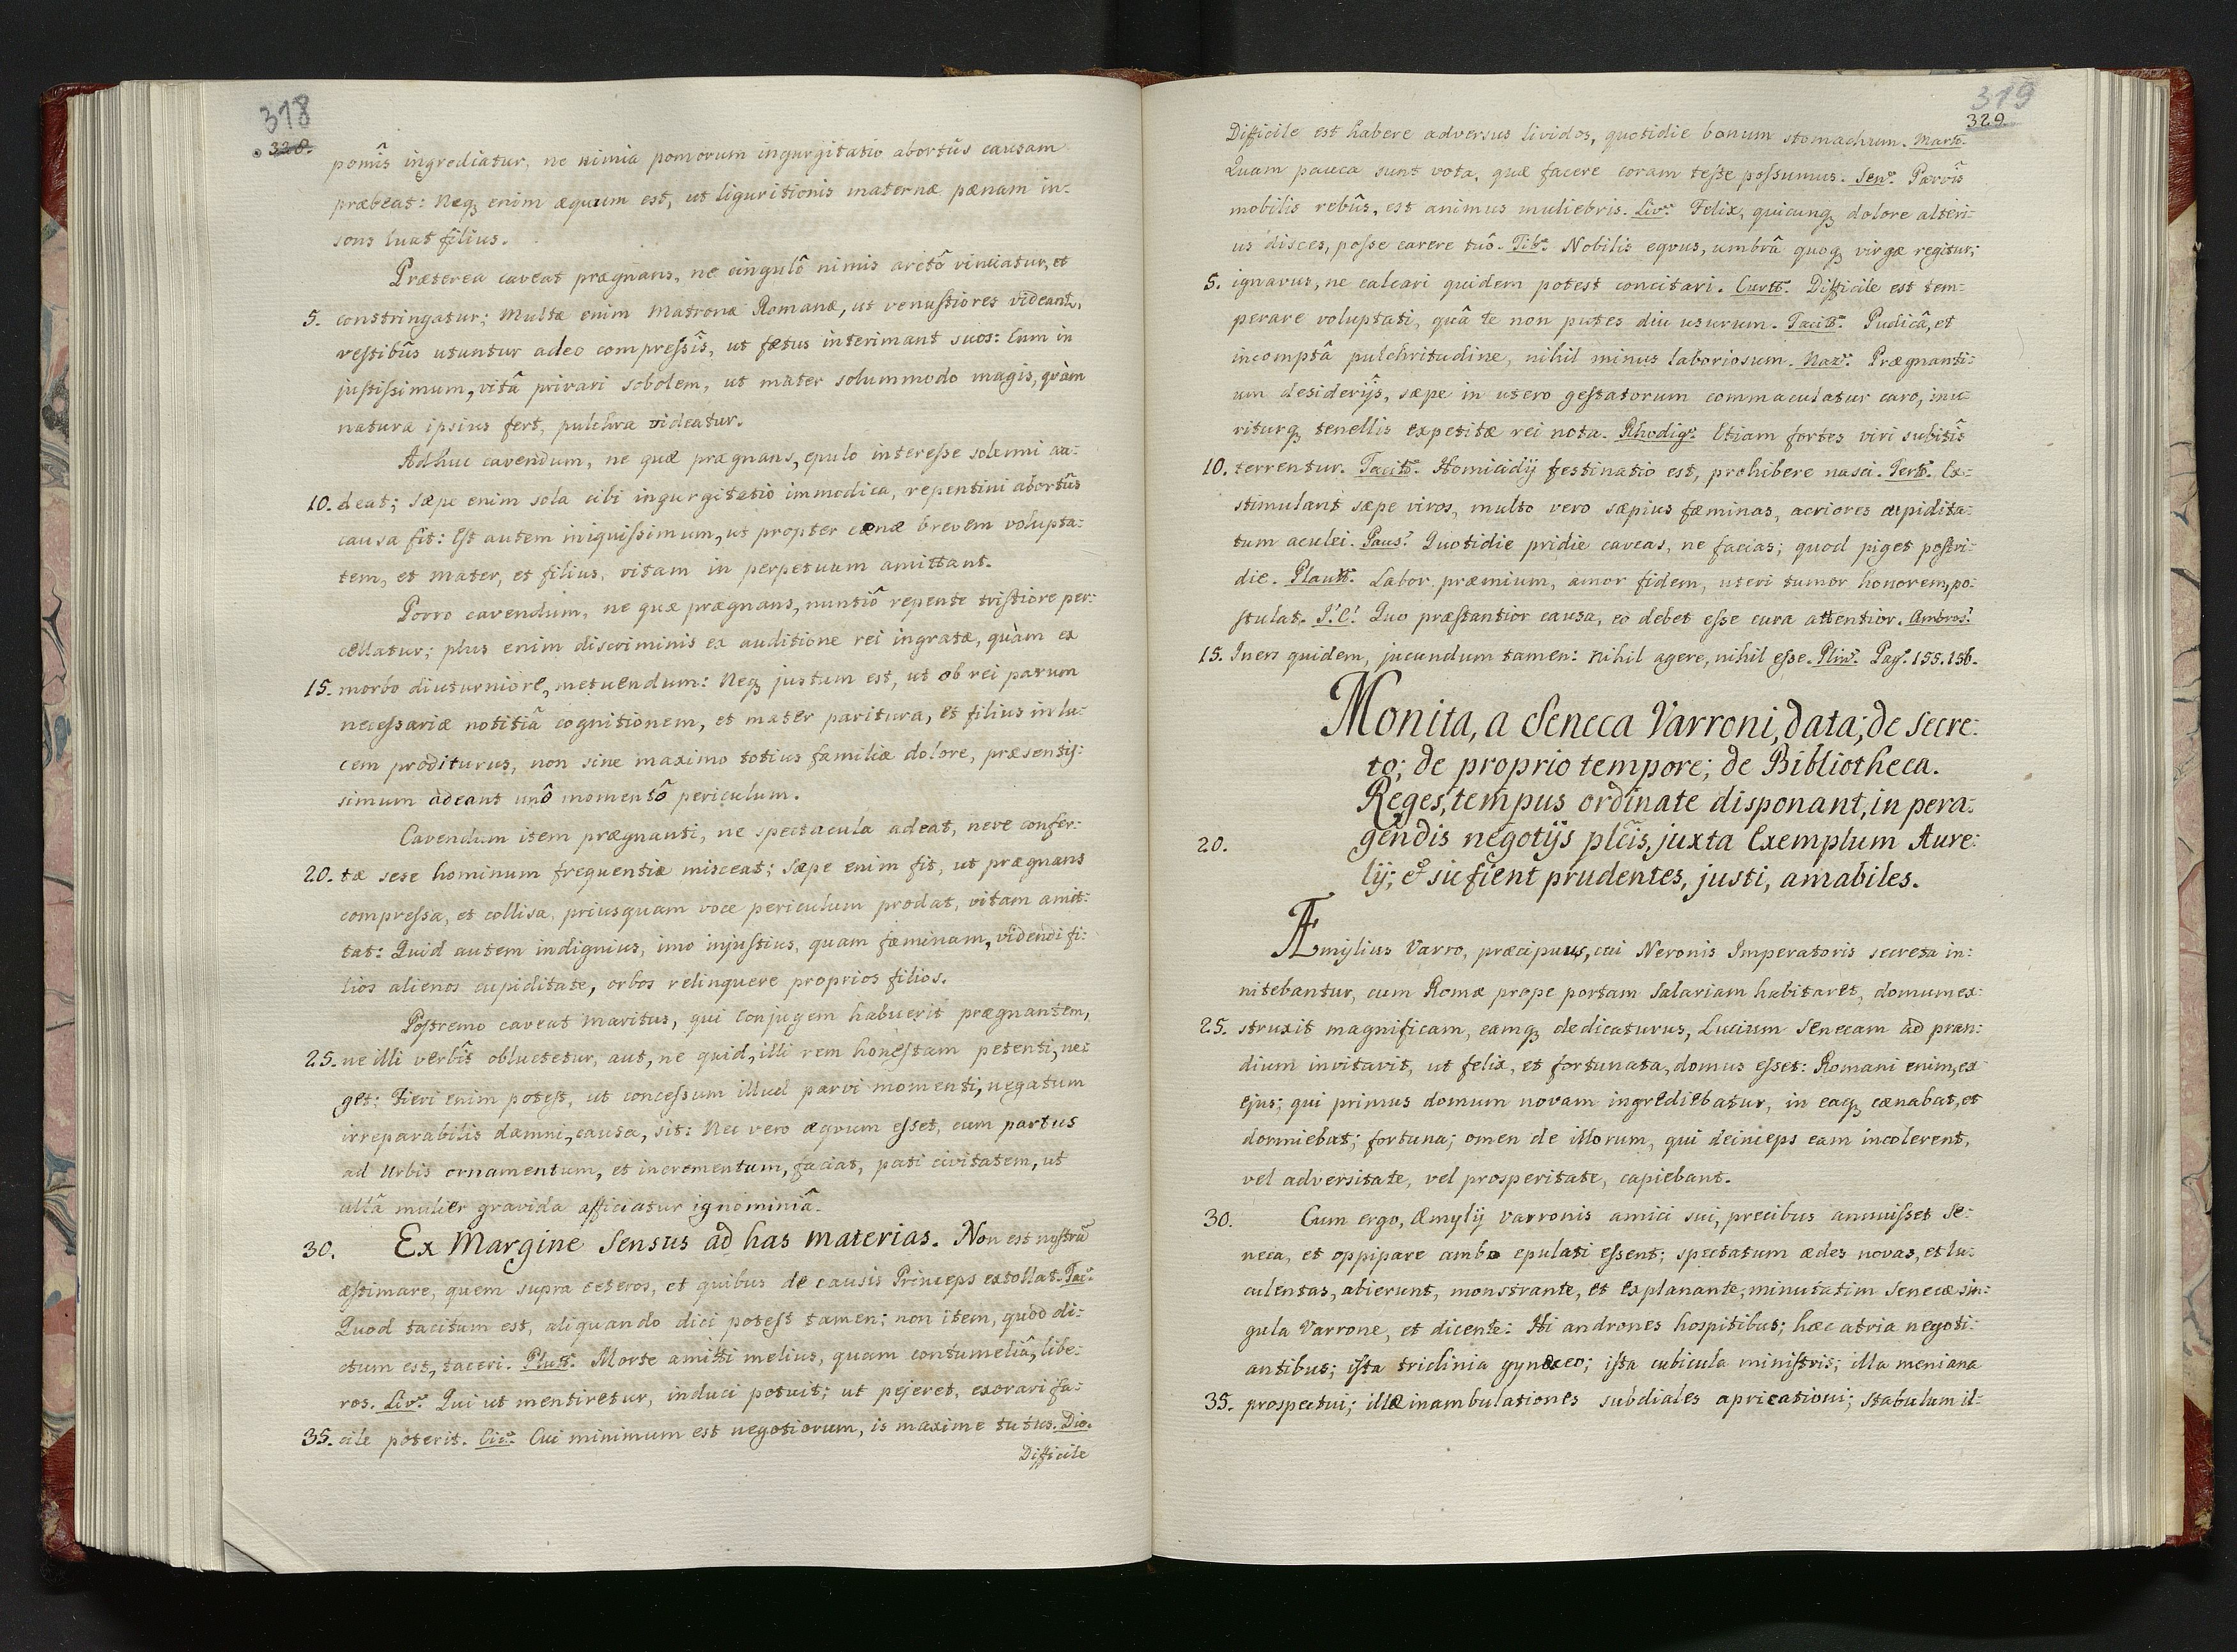 318
328.
pomîs ingrediatur, ne nimia pomorum ingurgitatio abortûs causam
præbeat: Neqȝ enim æquum est, ut liguritionis maternæ pænam in-
sons luat filius.
Præterea caveat prægnans, ne cingulô nimis arctô vinciatur, et
5. constringatur; Multæ enim Matronæ Romanæ, ut venustiores videantr,
vestibûs utuntur adeo compressîs, ut fætus interimant suos: Cum in
justissimum, vitâ privari sobolem, ut mater solummodo magis, quàm
natura ipsius fert, pulchra videatur.
Adhuc cavendum, ne quæ prægnans, epulo interesse solemni au:
10. deat; sæpe enim sola cibi ingurgitatio immodica, repentini abortûs
causa fit: Est autem iniquissimum, ut propter cænæ brevem volupta:
tem, et mater, et filius, vitam in perpetuum amittant.
Porro cavendum, ne quæ prægnans, nuntiô repente tristiore per:
cellatur; plus enim discriminis ex auditione rei ingratæ, quàm ex
15. morbo diuturniore, metuendum: Neqȝ justum est, ut ob rei parum
necessariæ notitiâ cognitionem, et mater paritura, et filius in lu:
cem proditurus, non sine maximo totius familiæ dolore, præsentis:
simum adeant unô momentô periculum.
Cavendum item prægnanti, ne spectacula adeat, neve confer:
20. tæ sese hominum frequentiæ misceat; Sæpe enim fit, ut prægnans
compressa, et collisa, priusquam voce periculum prodat, vitam amit:
tat: Quid autem indignius, imo injustius, quam fæminam, videndi fi:
lios alienos cupiditate, orbos relinquere proprios filios.
Postremo caveat maritus, qui Conjugem habuerit prægnantem,
25. ne illi verbîs obluctetur, aut, ne quid, illi rem honestam petenti, ne:
get: Fieri enim potest, ut concessum illud parvi momenti, negatum
irreparabilis damni, causa, sit: Nec vero æqvum esset, cum partus
ad Urbis ornamentum, et incrementum, faciat, pati civitatem, ut
ullâ mulier gravida afficiatur ignominiâ.
30. Ex Margine Sensus ad has materias. Non est nostrû
æstimare, quem supra ceteros, et quibus de causis Princeps extollat. Tac:
Quod tacitum est, aliquando dici potest tamen; non item, quod di:
ctum est, taceri. Plutt: Morte amitti melius, quam contumeliâ, libe:
ros. Liv: Qui ut mentiretur, induci potuit; ut pejeret, exorari fa:
35. cile poterit. Cic: Cui minimum est negotiorum, is maxime tutus. Dio.
Difficile
319
329.
Difficile est habere adversus lividos, quotidie bonum stomachum. Mart:
Quam pauca sunt vota, quæ facere coram teste possumus. Sen: Parvîs
mobilis rebûs, est animus muliebris. Liv: Felix, quicunqȝ dolore alteri:
us disces, posse carere tuô. Tib: Nobilis eqvus, umbrâ quoqȝ virgæ regitur;
5. ignavus, ne calcari quidem potest concitari. Curtt: Difficile est tem:
perare voluptati, quâ te non putes diu usurum. Tacit: Pudicâ, et
incomptâ pulchritudine, nihil minus laboriosum. Naz: Prægnanti:
um desiderijs, sæpe in utero gestatorum commaculatur caro, inu:
riturqȝ tenellis expetitæ rei nota. Rhodig: Etiam fortes viri subitîs
10. terrentur. Tacit: Homicidij festinatio est, prohibere nasci. Tert: Ex:
stimulant sæpe viros, multo vero sæpius fæminas, acriores cupidita:
tum aculei. Paus: Quotidie pridie caveas, ne facias; quod piget postri:
die. Plautt: Labor præmium, amor fidem, uteri tumor honorem, po:
stulat. J:C: Quo præstantior causa, eo debet esse cura attentior. Ambros:
15. Iners quidem, jucundum tamen: nihil agere, nihil esse. Plin: Pag. 155.156.
Monita, a Seneca Varroni, data; de secre:
to; de proprio tempore; de Bibliotheca.
Reges, tempus ordinate disponant, in pera:
20. gendis negotijs plcîs, juxta Exemplum Aure:
lij; & sic fient prudentes, justi, amabiles.
Æmylius Varro, præcipuus, cui Neronis Imperatoris secreta in:
nitebantur, cum Romæ prope portam Salariam habitaret, domum ex:
25. struxit magnificam, eamqȝ dedicaturus, Lucium Senecam ad pran:
dium invitavit, ut felix, et fortunata, domus esset: Romani enim, ex
ejus; qui primus domum novam ingrediebatur, in eaqȝ cænabat, et
dormiebat; fortuna; omen de illorum, qui deinceps eam incolerent,
vel adversitate, vel prosperitate, capiebant.
30. Cum ergo, Æmylij Varronis amici sui, precibus annuisset Se:
neca, et oppipare ambo epulati essent; spectatum ædes novas, et lu:
culentas, abierunt, monstrante, et explanante, minutatim Senecæ sin:
gula Varrone, et dicente: Hi andrones hospitibus; hæc atria negoti:
antibus; ista triclinia gynæceo; ista cubicula ministris; illa meniana
35. prospectui; illæ inambulationes subdiales apricationi; stabulum il-